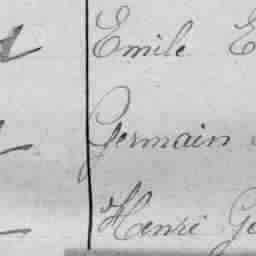 Emile E
Germain
Henri Ge